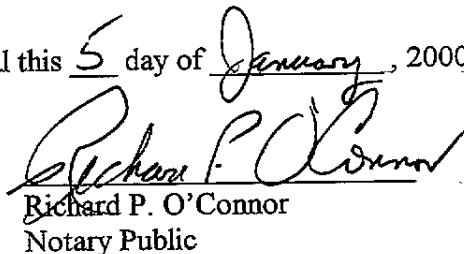 l this 5 day of January, 2000
Richard P. O'Connor
Richard P. O'Connor
Notary Public